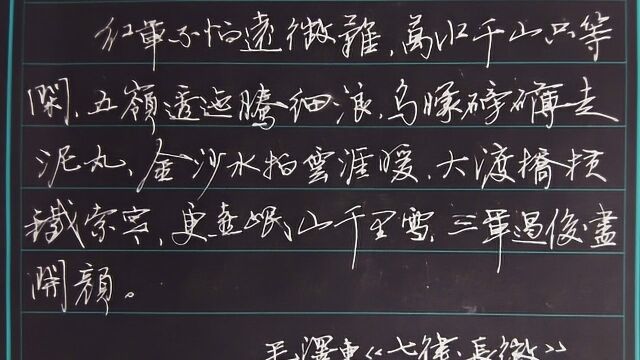 紅軍不怕遠徵難，萬水千山只等
閑，五嶺透迤騰細浪，烏矇磅礴走
泥丸，金沙水拍雲涯暖，大渡橋橫
鐵索寒，更喜岷山千里雪，三軍過後盡
開顏。
毛澤東《七律·長徵》